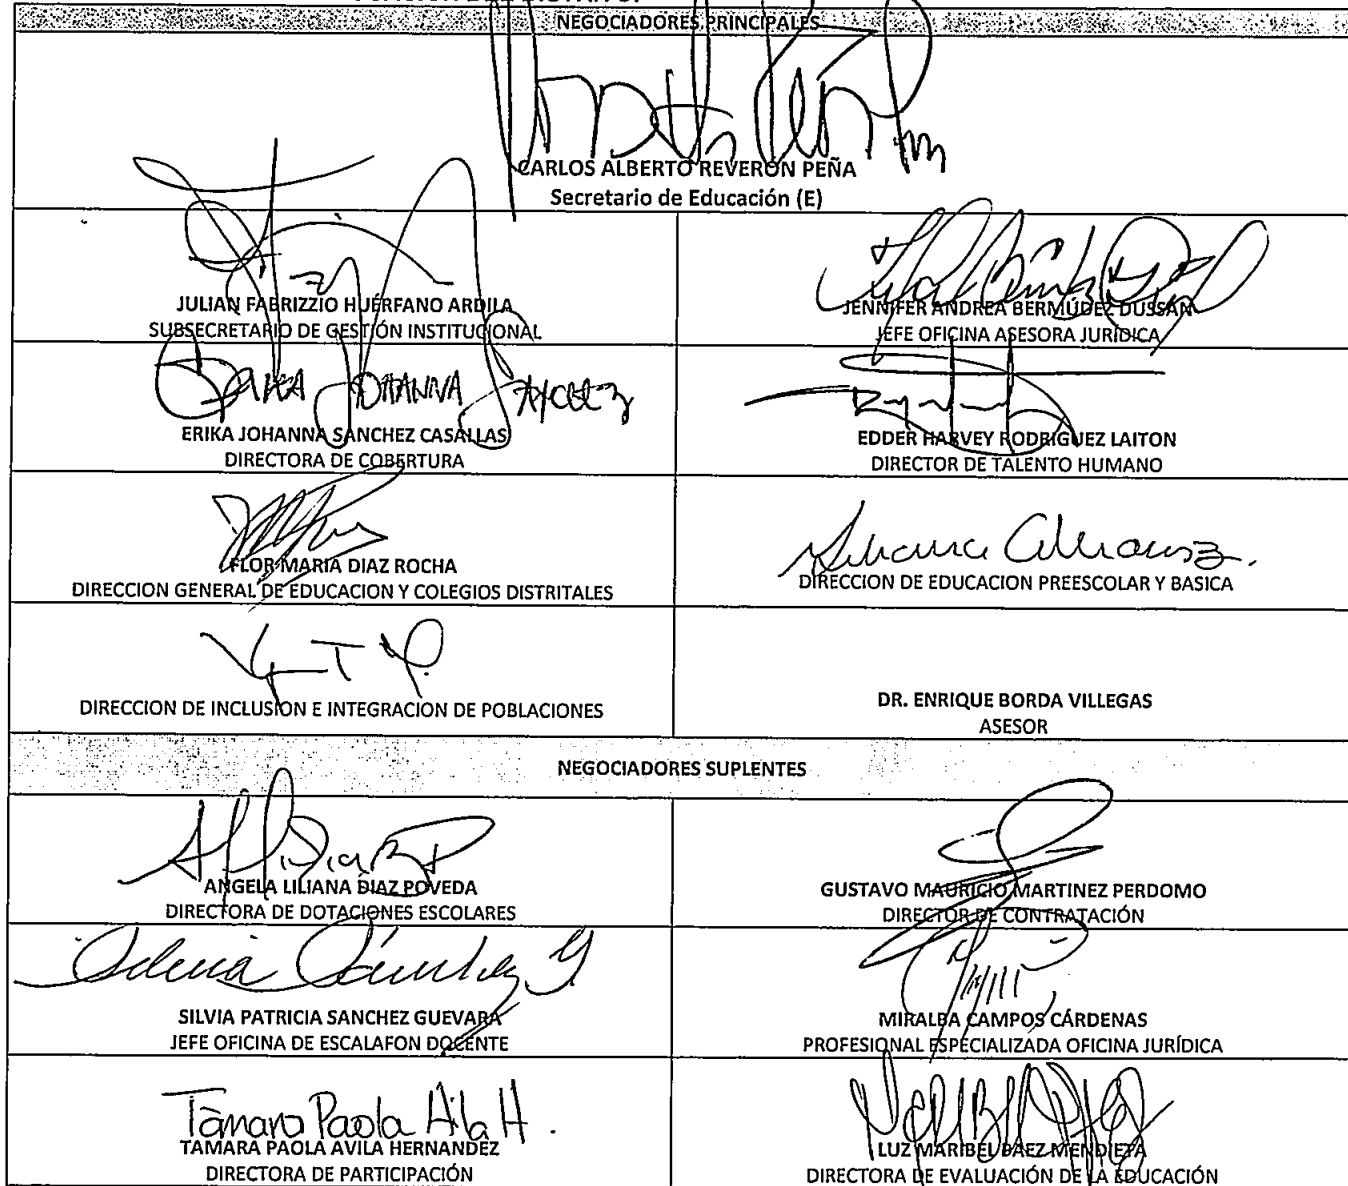 NEGOCIADORES PRINCIPALES
CARLOS ALBERTO REVERON PEÑA
Secretario de Educación (E)
JULIAN FABRIZZIO HUÉRFANO ARDILA
SUBSECRETARIO DE GESTIÓN INSTITUCIONAL
JENNIFER ANDREA BERMÚDEZ DUSSÁN
JEFE OFICINA ASESORA JURÍDICA
ERIKA JOHANNA SANCHEZ
ERIKA JOHANNA SANCHEZ CASALLAS
DIRECTORA DE COBERTURA
EDDER HARVEY RODRIGUEZ LAITON
DIRECTOR DE TALENTO HUMANO
FLOR MARIA DIAZ ROCHA
DIRECCION GENERAL DE EDUCACION Y COLEGIOS DISTRITALES
DIRECCION DE EDUCACION PREESCOLAR Y BASICA
DIRECCION DE INCLUSION E INTEGRACION DE POBLACIONES
DR. ENRIQUE BORDA VILLEGAS
ASESOR
NEGOCIADORES SUPLENTES
ANGELA LILIANA DIAZ POVEDA
DIRECTORA DE DOTACIONES ESCOLARES
GUSTAVO MAURICIO MARTINEZ PERDOMO
DIRECTOR DE CONTRATACIÓN
SILVIA PATRICIA SANCHEZ GUEVARA
JEFE OFICINA DE ESCALAFON DOCENTE
MIRALBA CAMPOS CÁRDENAS
PROFESIONAL ESPECIALIZADA OFICINA JURÍDICA
Tamara Paola Avila H.
TAMARA PAOLA AVILA HERNANDEZ
DIRECTORA DE PARTICIPACIÓN
LUZ MARIBEL PAEZ MENDIETA
DIRECTORA DE EVALUACIÓN DE LA EDUCACIÓN